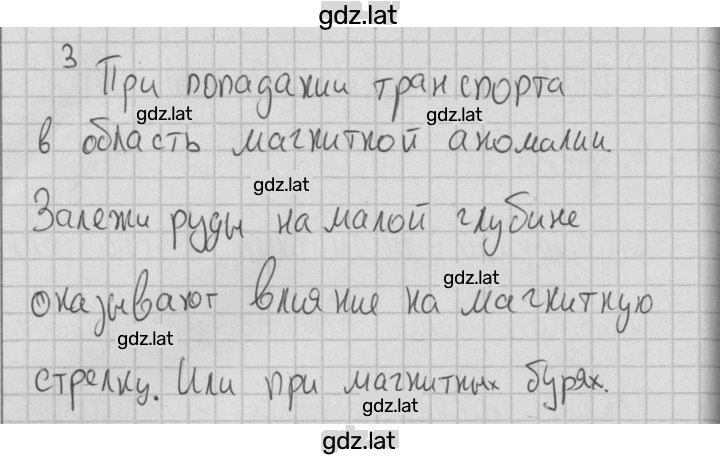 gdz.lat
3
При попадании транспорта
gdz.lat gdz.lat
в область магнитной аномалии.
gdz.lat
Залежи руды на малой глубине
gdz.lat
оказывают влияние на магнитную
gdz.lat
стрелку. Или при магнитных бурях.
gdz.lat
gdz.lat